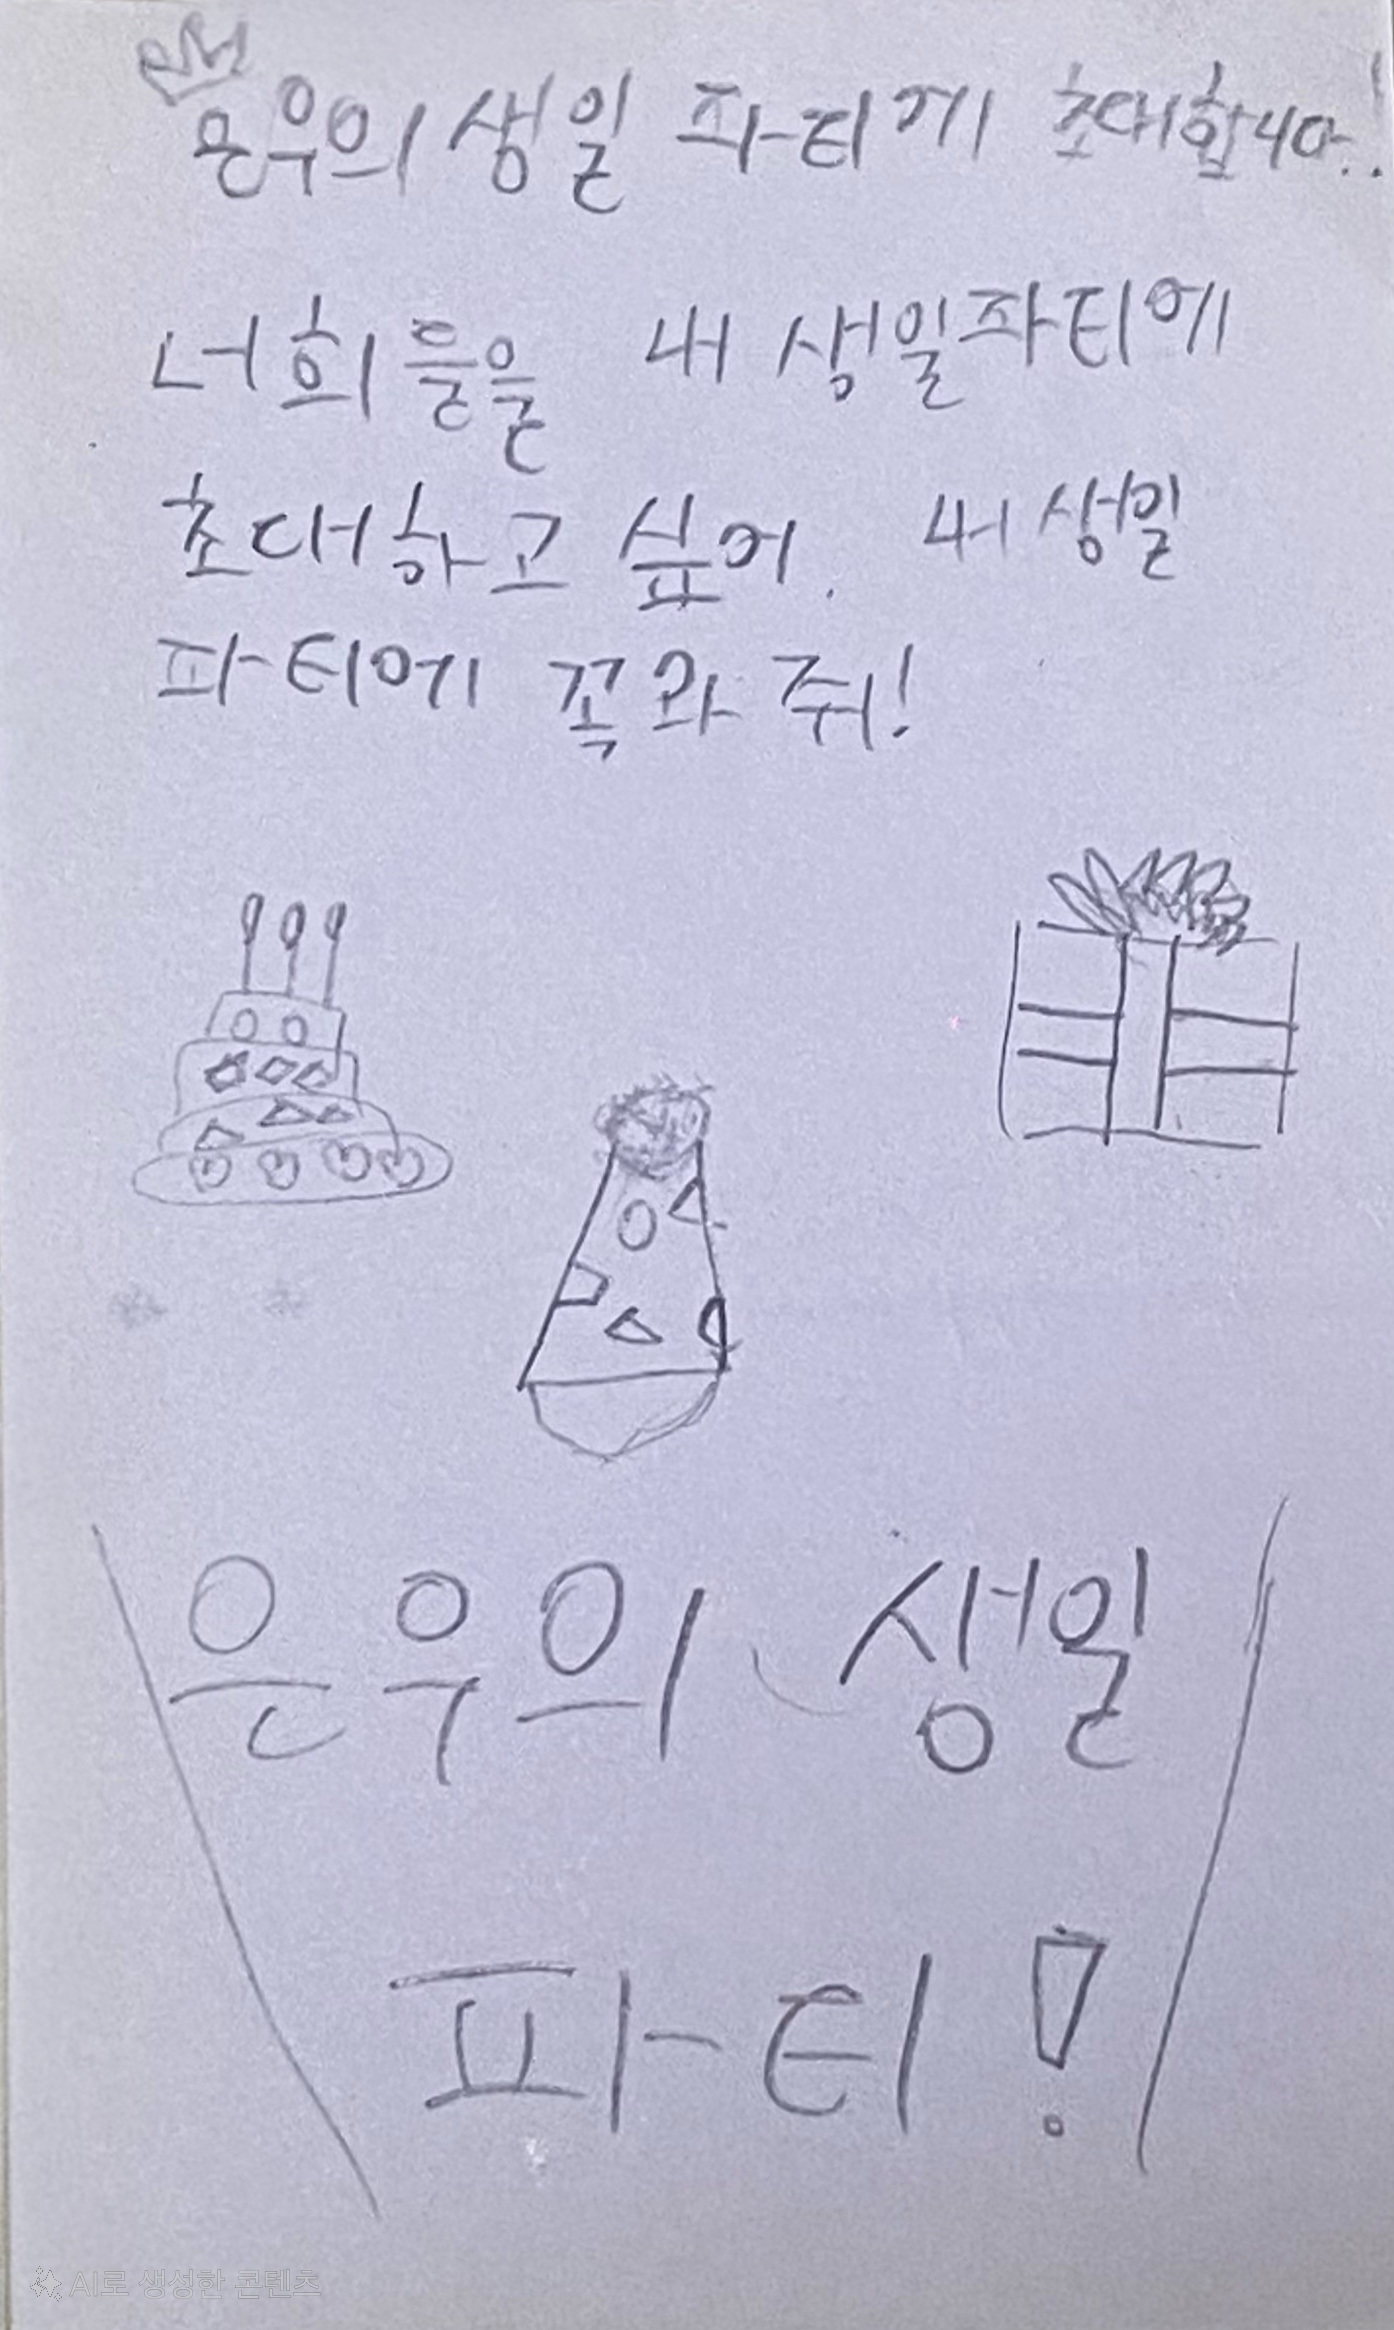 은우의 생일 파티게 초대합니다..!
너희들을 내 생일파티에
초대하고 싶어. 내 생일
파티에 꼭 와 줘!
은우의 생일
파티!
AI로 생성한 콘텐츠